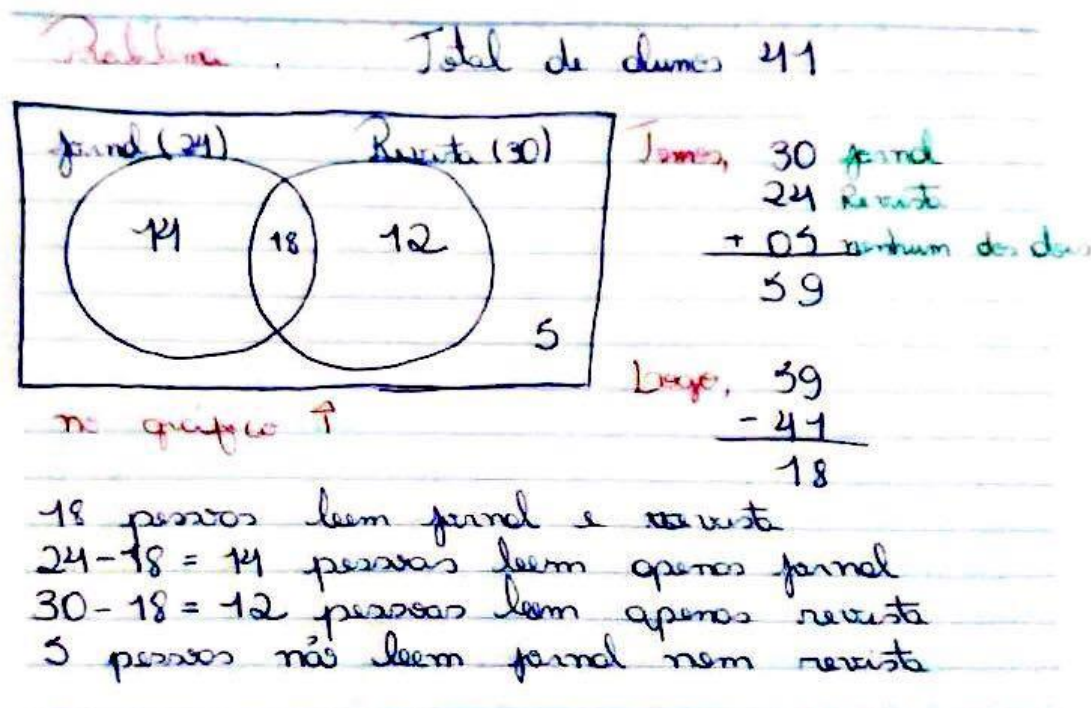 Problema. Total de alunos 41
Jornal (24) Revista (30)
14 18 12
5
Temos, 30 jornal
24 Revista
+ 05 nenhum dos dois
59
Logo, 59
- 41
18
no gráfico ↑
18 pessoas leem jornal e revista
24-18 = 14 pessoas leem apenas jornal
30-18 = 12 pessoas leem apenas revista
5 pessoas não leem jornal nem revista